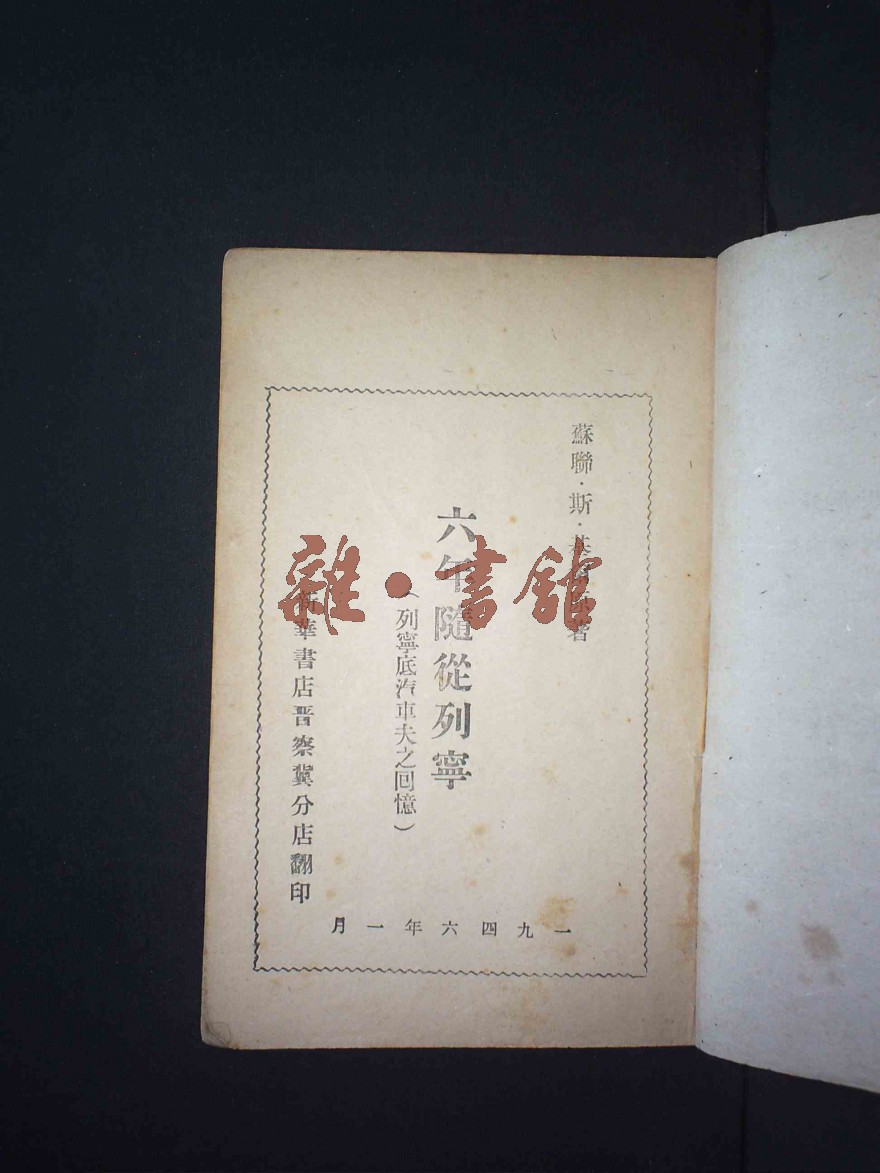 蘇聯·斯·基爾著
六年隨從列寧
（列寧底汽車夫之回憶）
新華書店晋察冀分店翻印
一九四六年一月
雜·書館